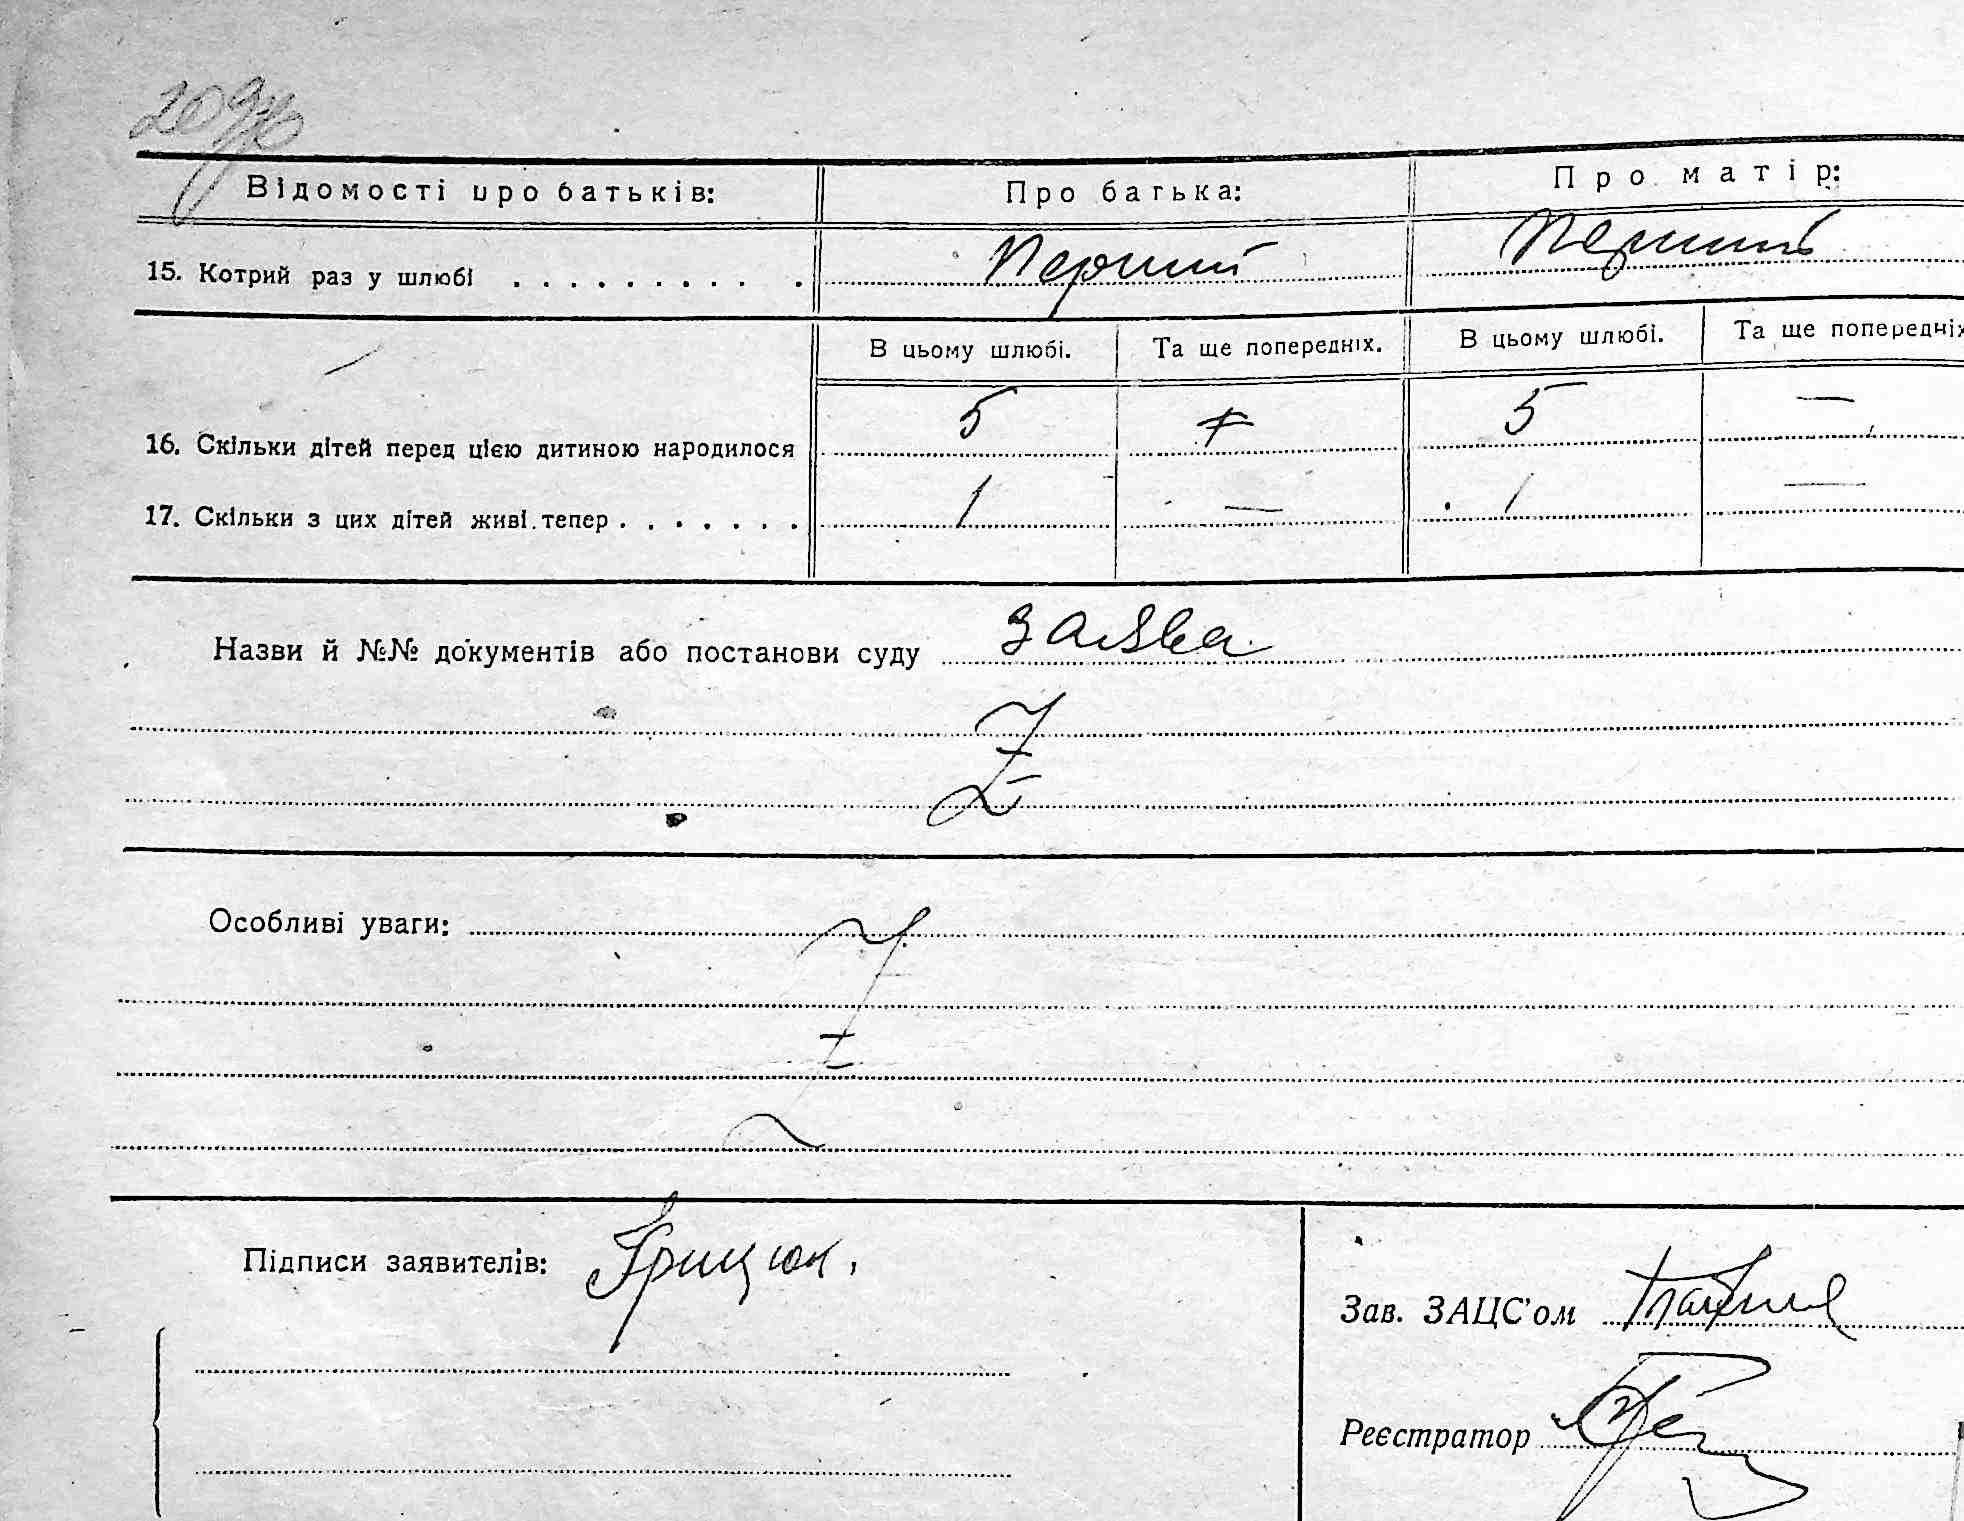 Відомості про батьків: Про батька: Про матір:
15. Котрий раз у шлюбі . . . . . . . . . . Перший Перший
В цьому шлюбі. Та ще попередніх. В цьому шлюбі. Та ще попередніх
16. Скільки дітей перед цією дитиною народилося 5 5 —
17. Скільки з цих дітей живі тепер . . . . . . . 1 — 1 —
Назви й №№ документів або постанови суду заява
Особливі уваги:
Підписи заявителів: Грицюк.
Зав. ЗАЦС'ом
Реєстратор